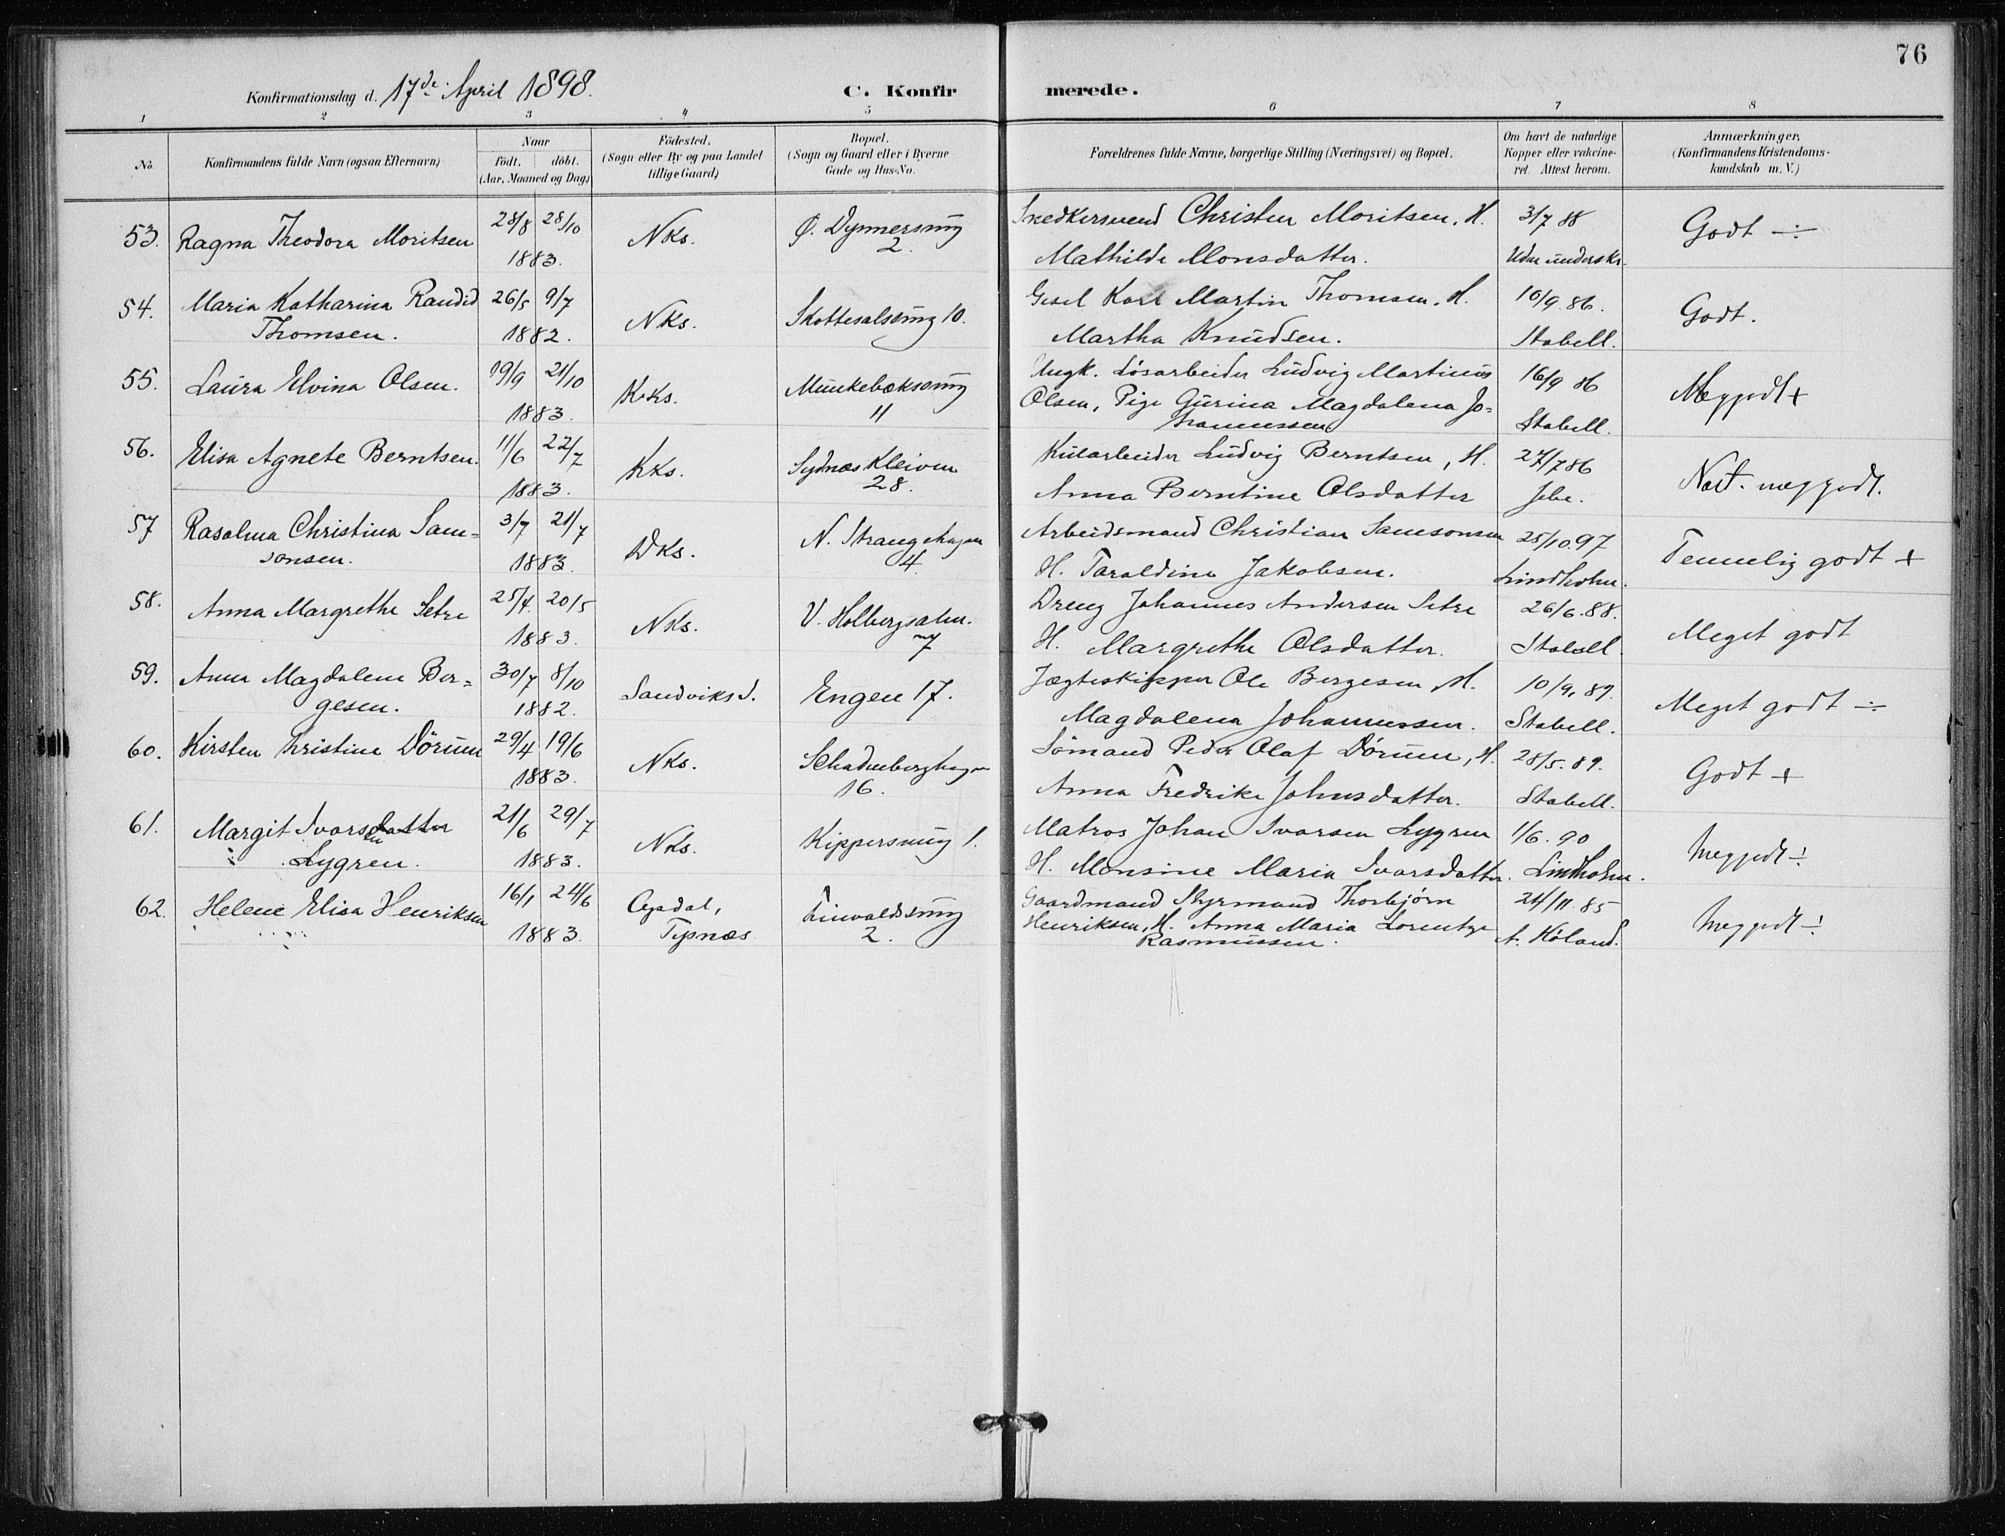 76
Konfirmationsdag d. 17de April 1898. C. Konfirmerede.
1 2 3 4 5 6 7 8
No. Konfirmandens fulde Navn (ogsaa Efternavn) Naar födt. döbt. (Aar, Maaned og Dag) Födested. (Sogn eller By og paa Landet tillige Gaard) Bopæl. (Sogn og Gaard eller i Byerne Gade og Hus-No. Forældrenes fulde Navne, borgerlige Stilling (Næringsvei) og Bopæl. Om havt de naturlige Kopper eller vakcineret. Attest herom. Anmærkninger, (Konfirmandens Kristendomskundskab m. V.)
53. Ragna Theodora Moritsen 28/8 28/10 Nks. Ø. Dynnersmug Snedkersvend Christen Moritsen, H. 3/7 88 Godt ÷
1883. 2. Mathilde Monsdatter. Uden underskr.
54. Maria Katharina Randid 26/5 9/7 Nks. Skottesalsmug 10. Gesel Karl Martin Thomsen. H. 10/9.86. Godt.
Thomsen. 1882. Martha Knudsen. Stabell.
55. Laura Elvina Olsen. 19/9 21/10 Kks. Munkebæksmug Ungk. Løsarbeider Ludvig Martinus 16/9 86 Megjodt +
1883. 11 Olsen, Pige Gurina Magdalena Jo= Stabell.
hannessen
56. Elisa Agnete Berntsen. 11/6 22/7 Kks. Sydnæskleiven Kularbeider Ludvig Berntsen, H. 27/7 86 Næst. meggodt.
1883. 28. Anna Berntine Olsdatter Jebe.
57 Rasalma Christina Sam= 3/7 21/7 Dks. N. Strangehagen Arbeidsmand Christian Samsonsen 25/10.97 Temmelig godt +
sonsen. 1883. 4. H. Taraldine Jakobsen. Lindholm.
58. Anna Margrethe Setre 25/4. 20/5 Nks. V. Holbergsalm. Dreng Johannes Andersen Setre 26/6.88. Meget godt
1883. 7 H. Margrethe Olsdatter. Stabell
59. Anna Magdalena Ber= 30/7 8/10 Sandviks S. Engen 17. Jægteskipper Ole Bergesen, H. 10/9.89. Meget godt ÷
gesen. 1882. Magdalena Johannessen. Stabell.
60. Kirsten Kristine Dörum 29/4 19/6 Nks. Schadenberghagen Sömand Peder Olaf Dörum, H. 28/5.89. Godt +
1883. 16. Anna Fredrike Johnsdatter. Stabell.
61. Margit Ivarsdatter 21/6 29/7 Nks. Kippersmug 1. Matros Johan Ivarsen Lygren 1/6.90 Meggodt ÷
Lygren. 1883. H. Monsine Maria Ivarsdatter. Lindholm.
62. Helene Elisa Henriksen 16/1 24/6 Opdal, Finvaldsmug Gaardmand Styrmand Thorbjørn 24/11.85 Meggodt ÷
1883. Typnæs 2. Henriksen, H. Anna Maria Lorentze A. Høland.
Rasmussen.